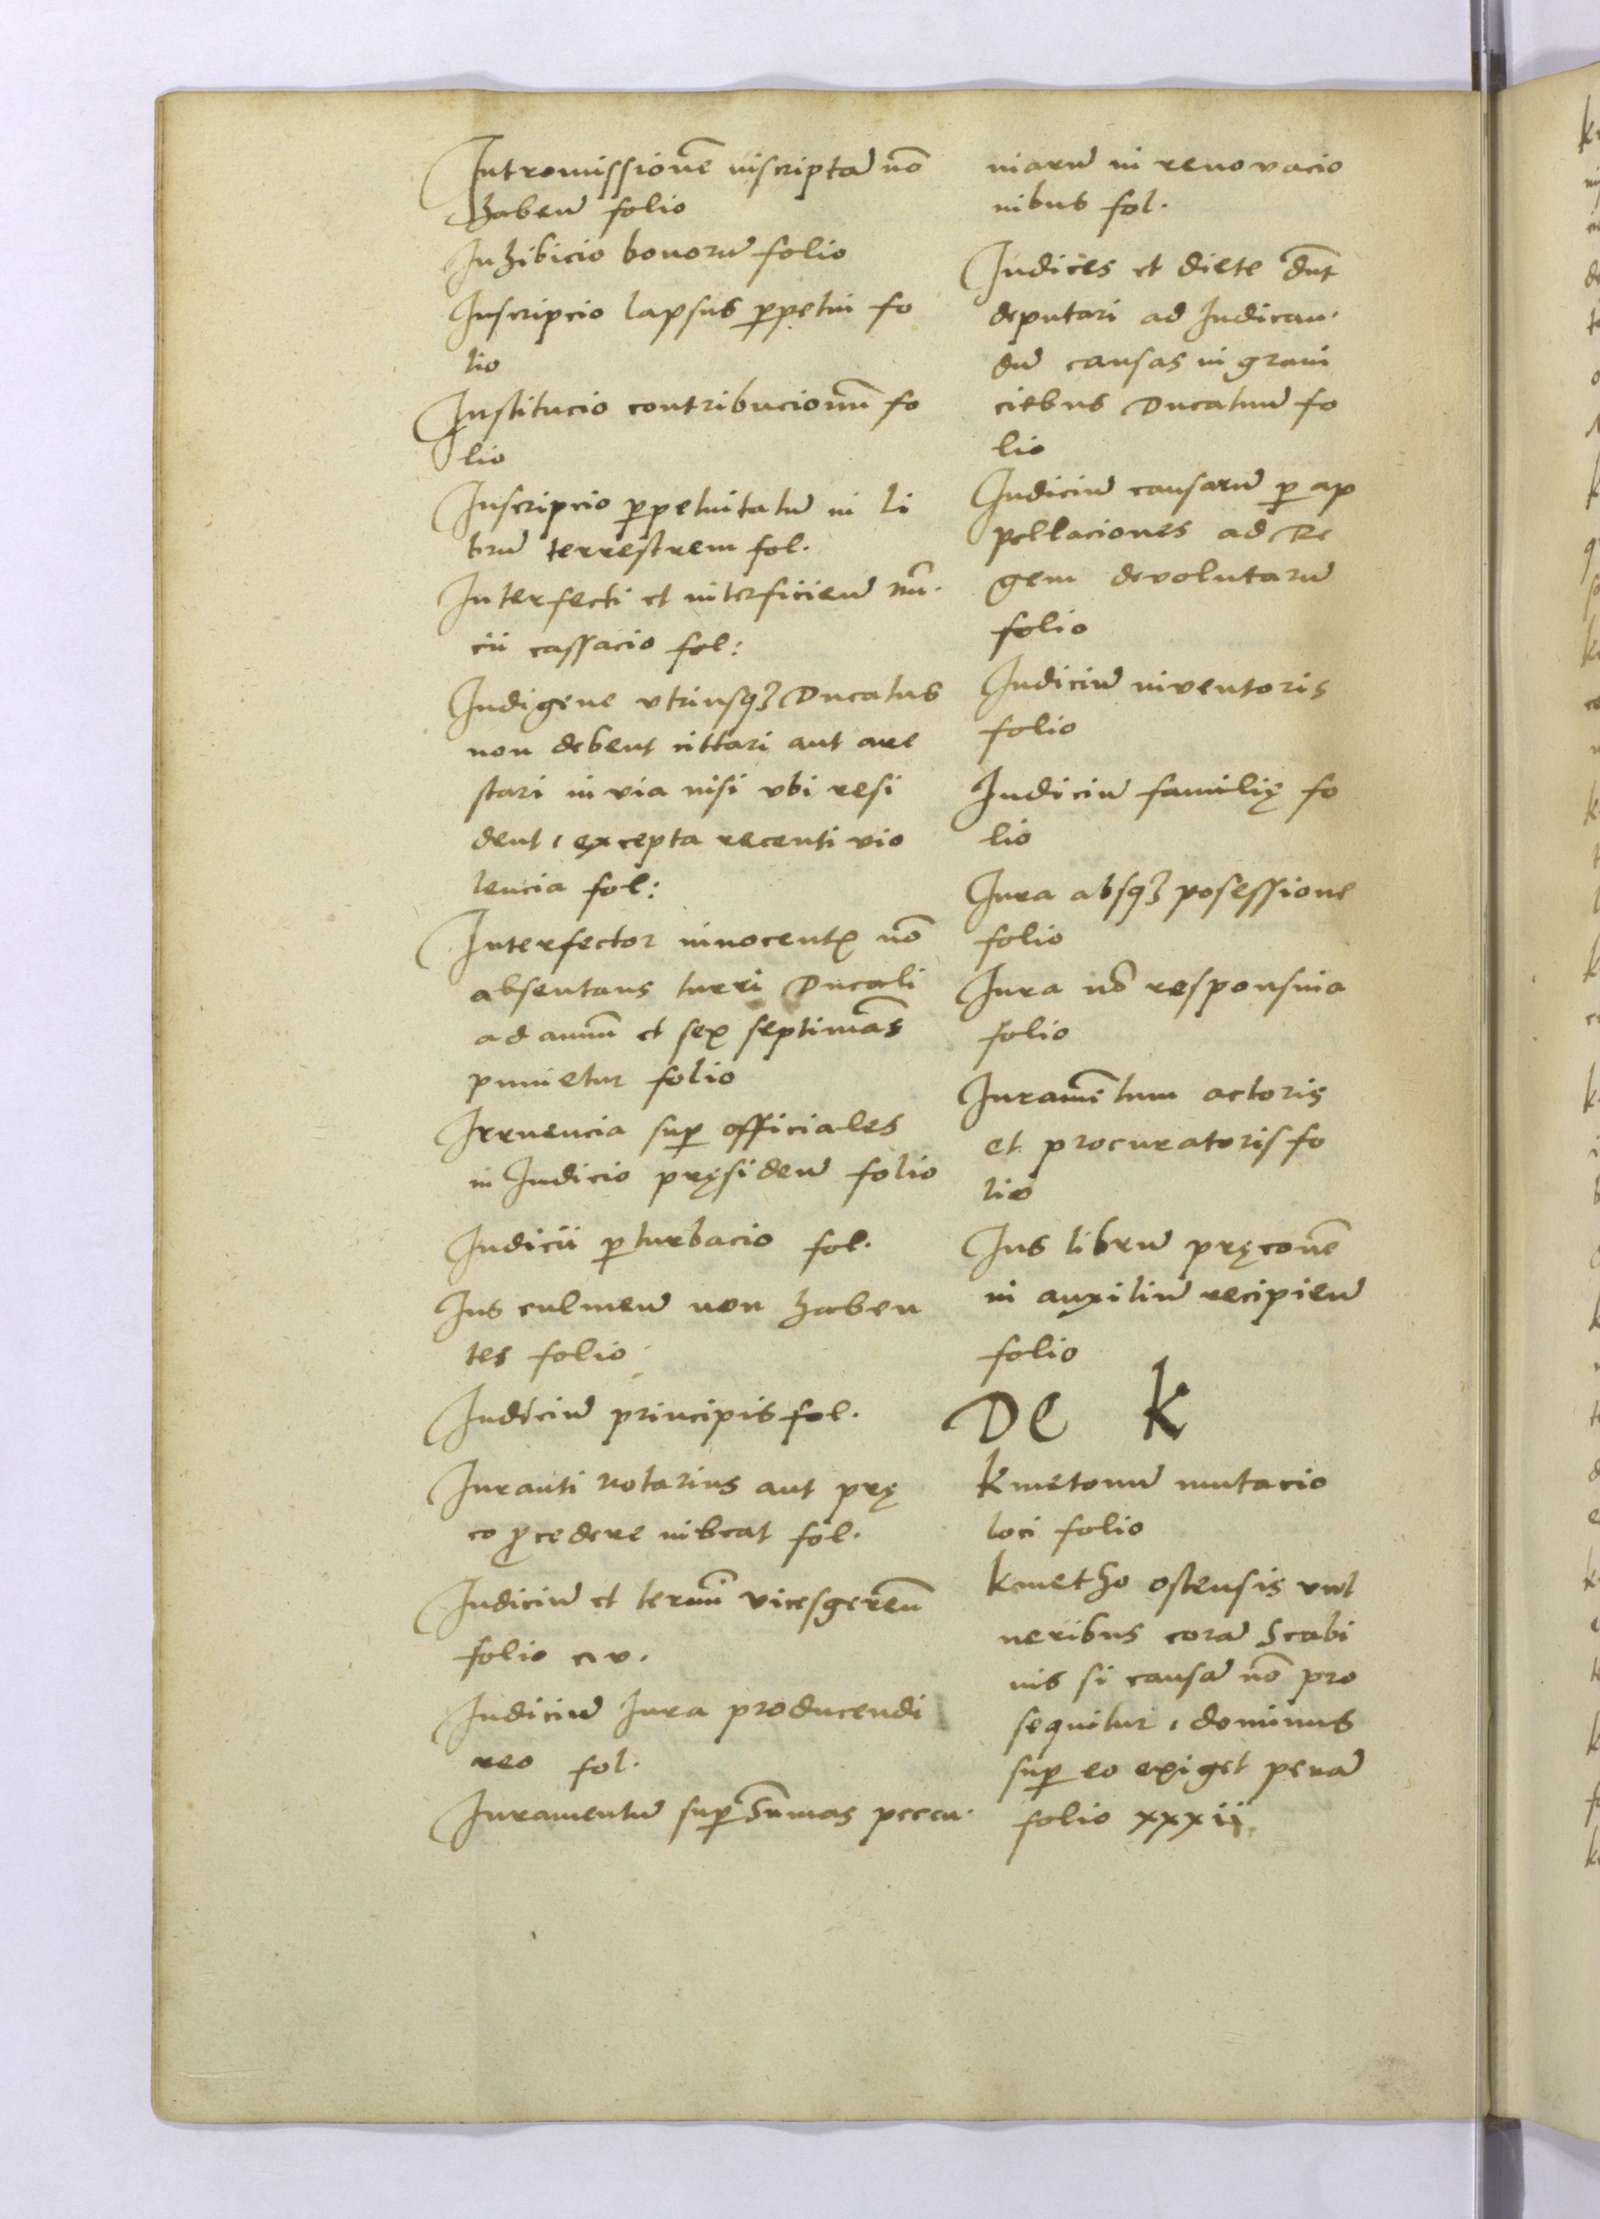 Intromissionē inscriptā nō
habeñ folio
Inhibicio bonorū folio
Inscripcio lapsus ꝑpetui fo
lio
Institucio contribucionū fo
lio
Inscripcio ꝑpetuitatū in li
brū terrestrem fol.
Interfecti et interficieñ nū.
cii cassacio fol:
Indigene vtriusqȝ Ducatus
non debent cittari aut are
stari in via nisi vbi resi
dent, excepta recenti vio
lencia fol:
Interfector innocentꝭ nō
absentans turri Ducali
ad annū et sex septimās
punietur folio
Irruencia suꝑ officiales
in Iudicio pręsideñ folio
Iudicii ꝑturbacio fol.
Ius culmeñ non haben
tes folio
Iudiciū principis fol.
Iuranti notarius aut prę
co ꝓcedere iubeat fol.
Iudiciū et termī vicesgereñ
folio cv.
Iudiciū Iura producendi
reo fol.
Iuramentū suꝑ Sūmas peccu.
niarū in renovacio
nibus fol.
Iudices et diete dñt
deputari ad Iudican.
dū causas in grani
ciebus Ducatuū fo
lio
Iudiciū causarū ꝑ ap
pellaciones ad Re
gem devolutarū
folio
Iudiciū inventoris
folio
Iudiciū familię fo
lio
Iura absqȝ posessione
folio
Iura nō responsiua
folio
Iuramētum actoris
et procuratoris fo
lio
Ius librū pręconē
in auxiliū recipieñ
folio
De K
Kmetonū mutacio
loci folio
Kmetho ostensis vul
neribus corā Scabi
nis si causā nō pro
sequitur, dominus
suꝑ eo exiget penā
folio xxxii